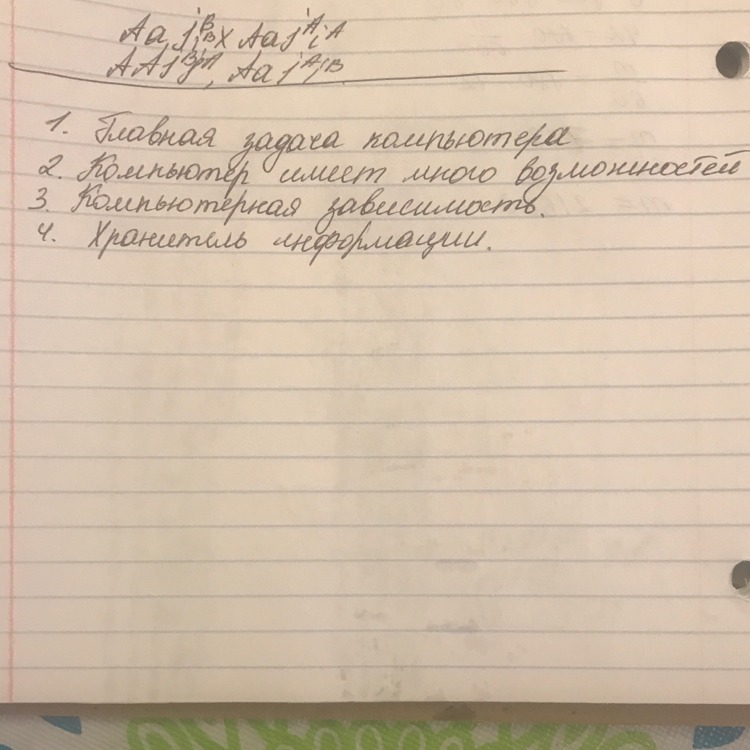 Aa j^B j^B x Aa j^A i^A
AA j^B j^A, Aa j^A j^B
1. Главная задача компьютера
2. Компьютер имеет много возможностей
3. Компьютерная зависимость.
4. Хранитель информации.